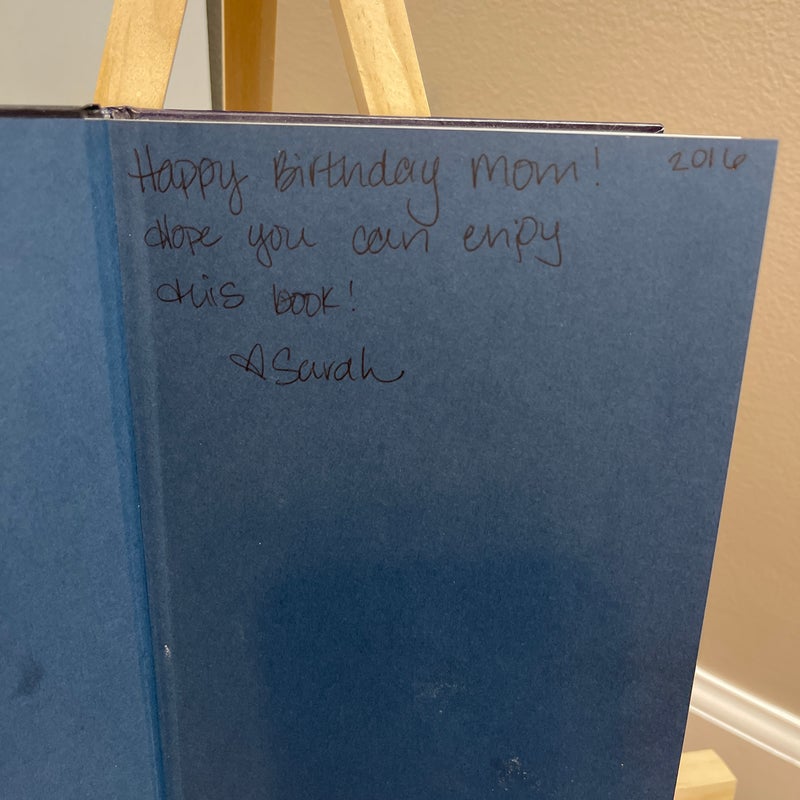 Happy Birthday Mom! 2016
Hope you can enjoy
this book!
♡Sarah